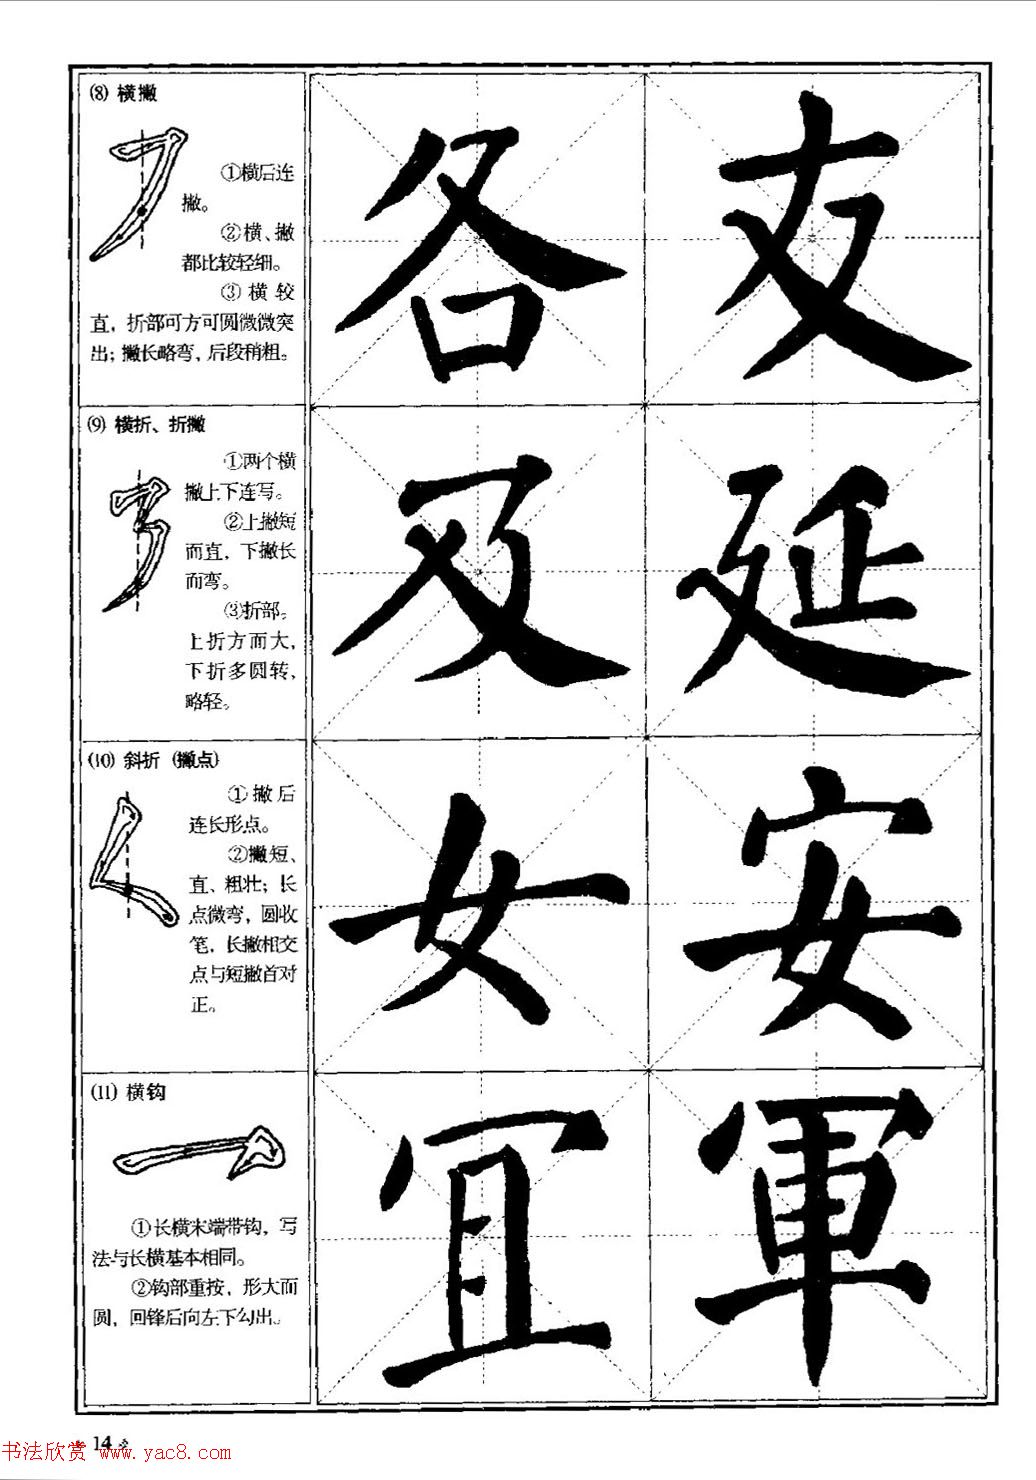 ⑻ 横撇
①横后连
撇。
②横、撇
都比较轻细。
③横较
直，折部可方可圆微微突
出；撇长略弯，后段稍粗。
各 友
⑼ 横折、折撇
①两个横
撇上下连写。
②上撇短
而直，下撇长
而弯。
③折部。
上折方而大，
下折多圆转，
略轻。
及 延
⑽ 斜折（撇点）
①撇后
连长形点。
②撇短、
直、粗壮；长
点微弯，圆收
笔，长撇相交
点与短撇首对
正。
女 安
⑾ 横钩
①长横末端带钩，写
法与长横基本相同。
②钩部重按，形大而
圆，回锋后向左下勾出。
冝 軍
14
书法欣赏 www.yac8.com